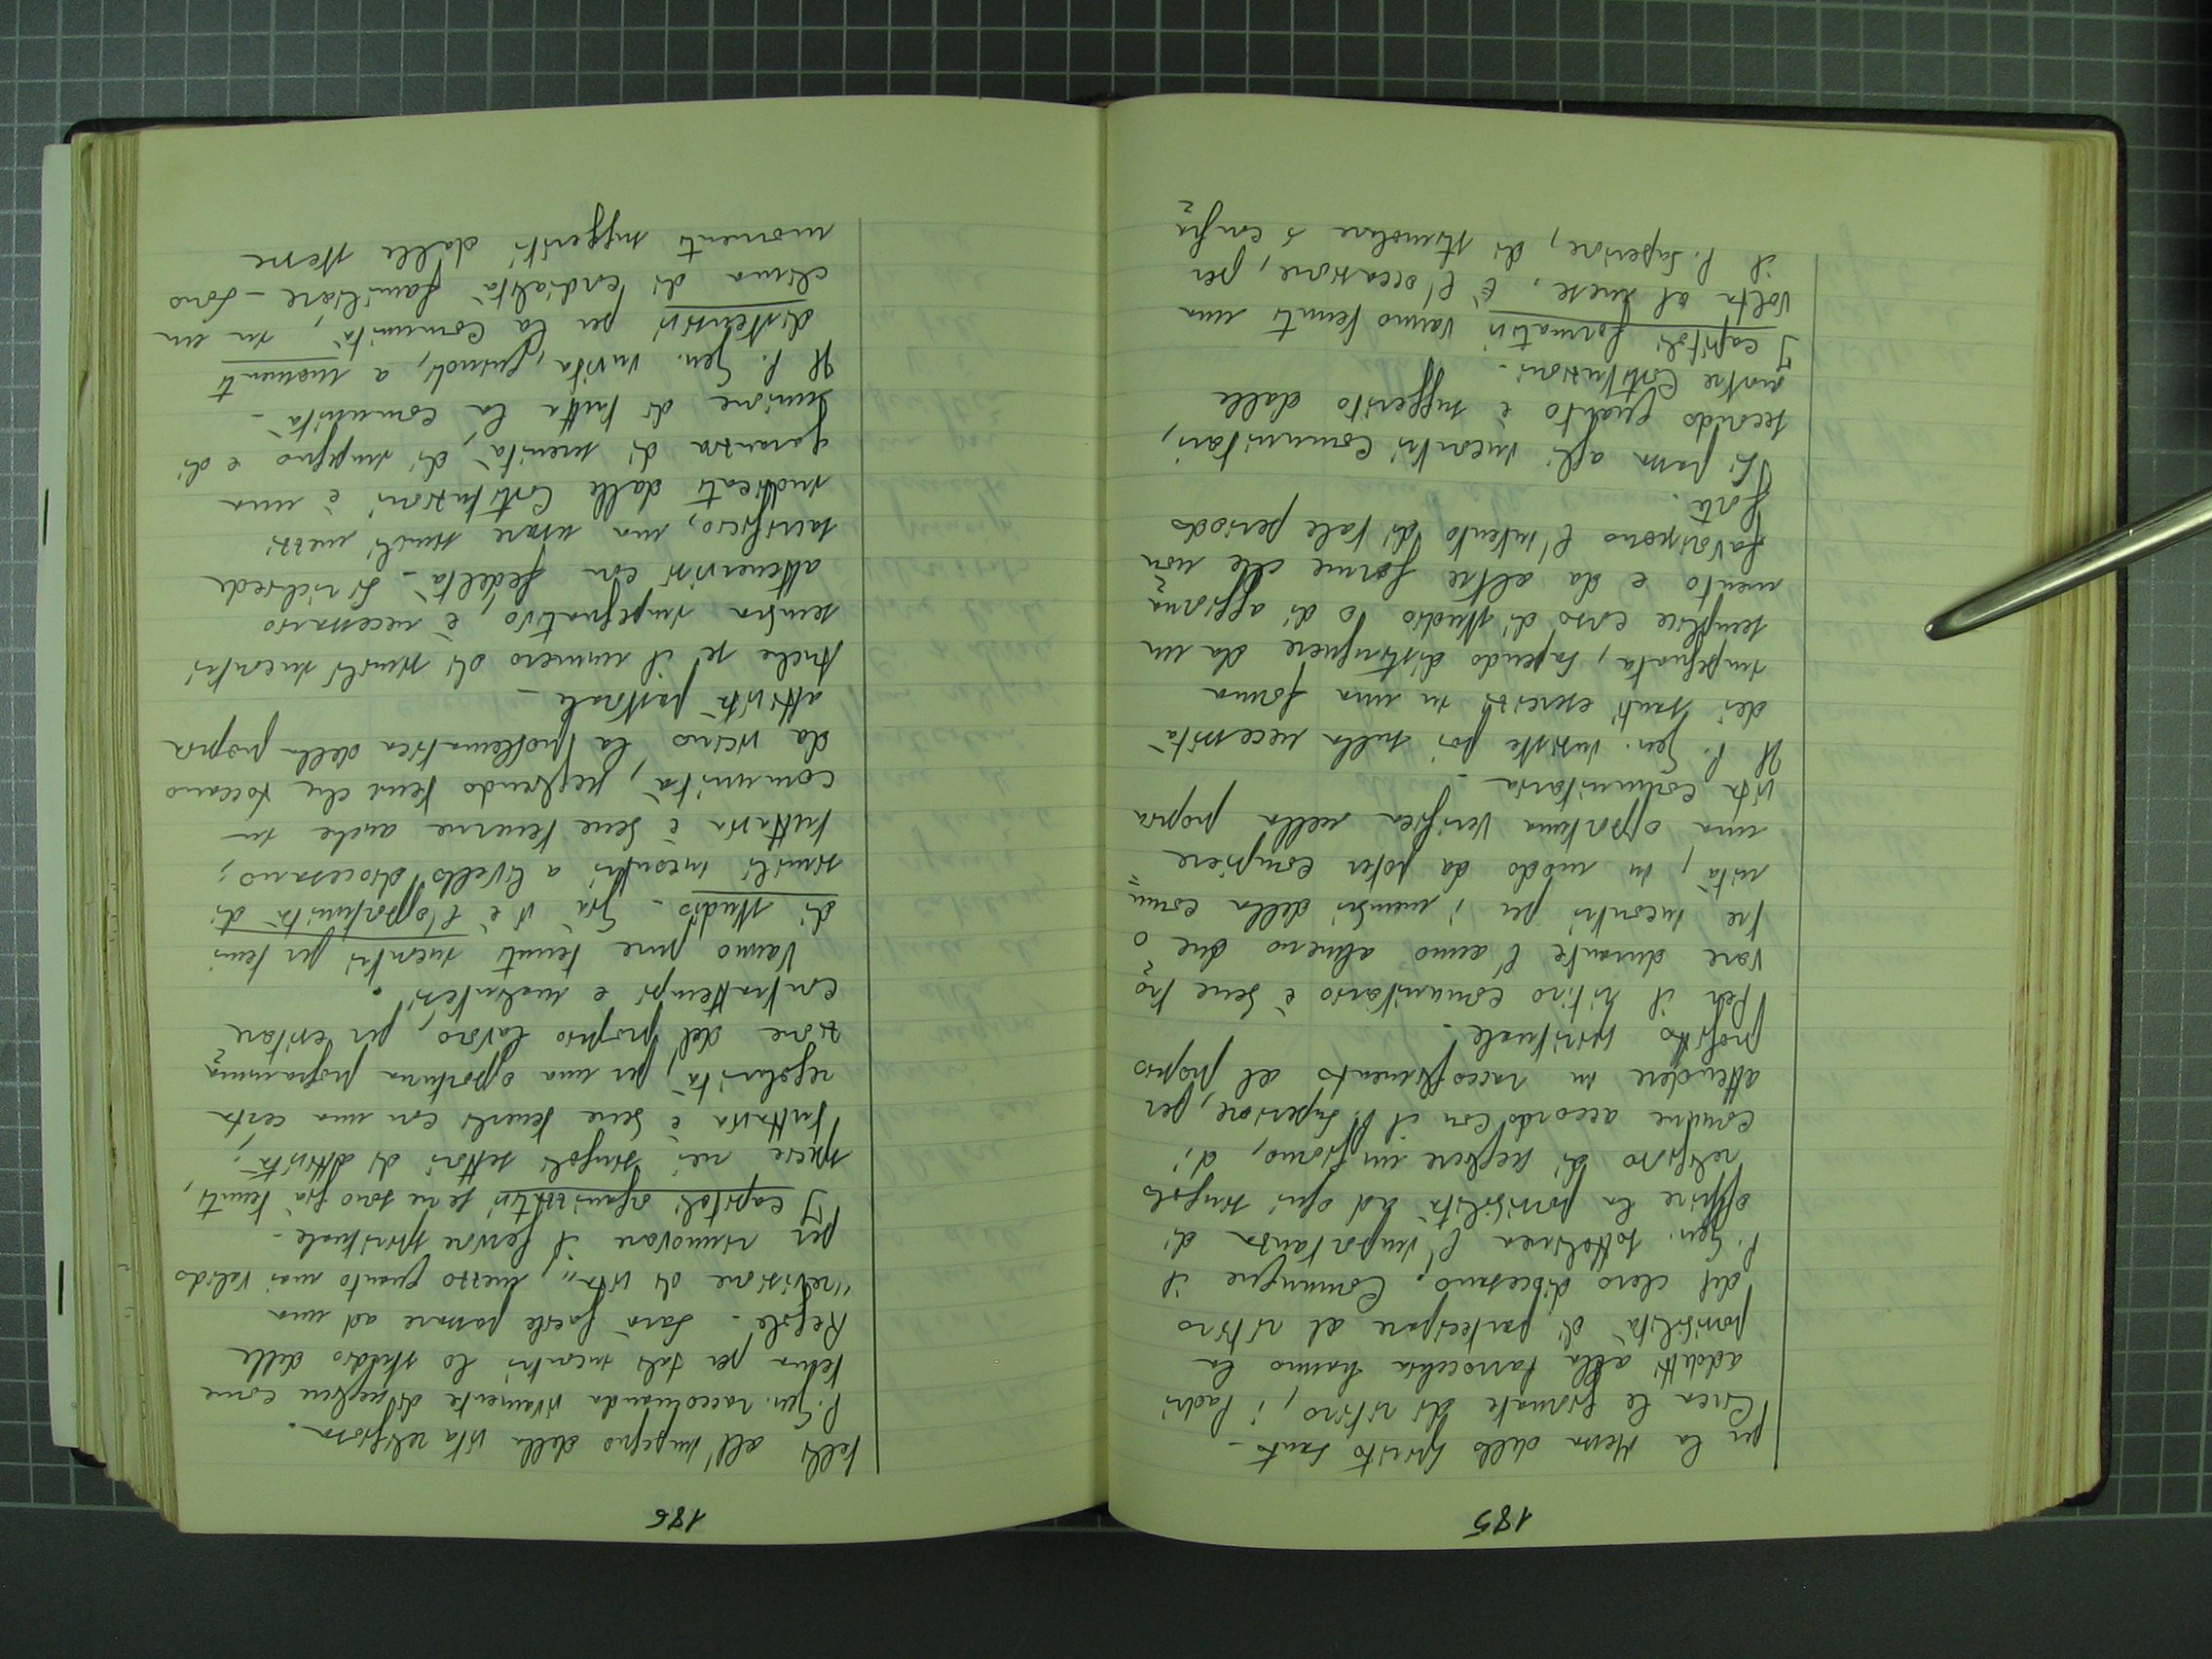 185
per la Messa dello Spirito Santo -
Circa le giornate di ritiro, i Padri
addetti alla parrocchia hanno la
possibilità di partecipare al ritiro
del clero diocesano. Comunque il
P. Gen. sottolinea l'importanza di
offrire la possibilità ad ogni singolo
religioso di scegliere un giorno, di
comune accordo con il P. Superiore, per
attendere in raccoglimento al proprio
profitto spirituale.
Per il ritiro comunitario è bene tro=
vare durante l'anno almeno due o
tre incontri per i membri della comu=
nità, in modo da poter compiere
una opportuna verifica nella propria
vita comunitaria -
Il P. Gen. insiste poi sulla necessità
dei santi esercizi in una forma
impegnata, sapendo distinguere da un
semplice corso di studio o di aggiorna=
mento e da altre forme che non
favoriscono l'intento di tale periodo
forte.
Si passa agli incontri comunitari,
secondo quanto è suggerito dalle
nostre Costituzioni.
I capitoli formativi vanno tenuti una
volta al mese. È l'occasione, per
il P. Superiore, di stimolare i confra=
186
telli all'impegno della vita religiosa.
P. Gen. raccomanda vivamente di scegliere come
tema per tali incontri lo studio delle
Regole - Sarà facile passare ad una
"revisione di vita", mezzo quanto mai valido
per rinnovare il fervore spirituale -
I capitoli organizzativi se ne sono già tenuti,
specie nei singoli settori di attività;
tuttavia è bene tenerli con una certa
regolarità, per una opportuna programma=
zione del proprio lavoro, per evitare
contrattempi e malintesi.
Vanno pure tenuti incontri per temi
di studio - Già v'è l'opportunità di
simili incontri a livello diocesano;
tuttavia è bene tenerne anche in
comunità, scegliendo temi che toccano
da vicino la problematica della propria
attività pastorale -
Anche se il numero di simili incontri
sembra impegnativo, è necessario
attenervisi con fedeltà - Si richiede
sacrificio, ma usare simili mezzi
indicati dalle Costituzioni è una
garanzia di serietà, di impegno e di
unione di tutta la comunità -
Il P. Gen. invita, quindi, a momenti
distensivi per la Comunità, in un
clima di cordialità familiare - Sono
momenti suggeriti dalle stesse